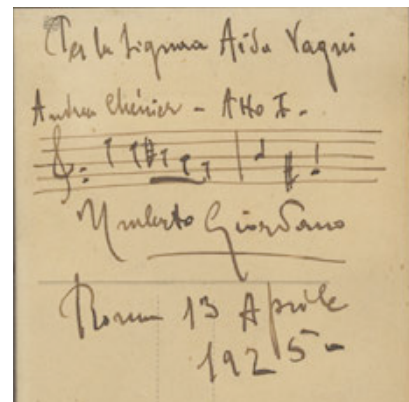 Per la Signora Aida Vagni
Andrea Chénier - Atto I.
Umberto Giordano
Roma 13 Aprile
1925